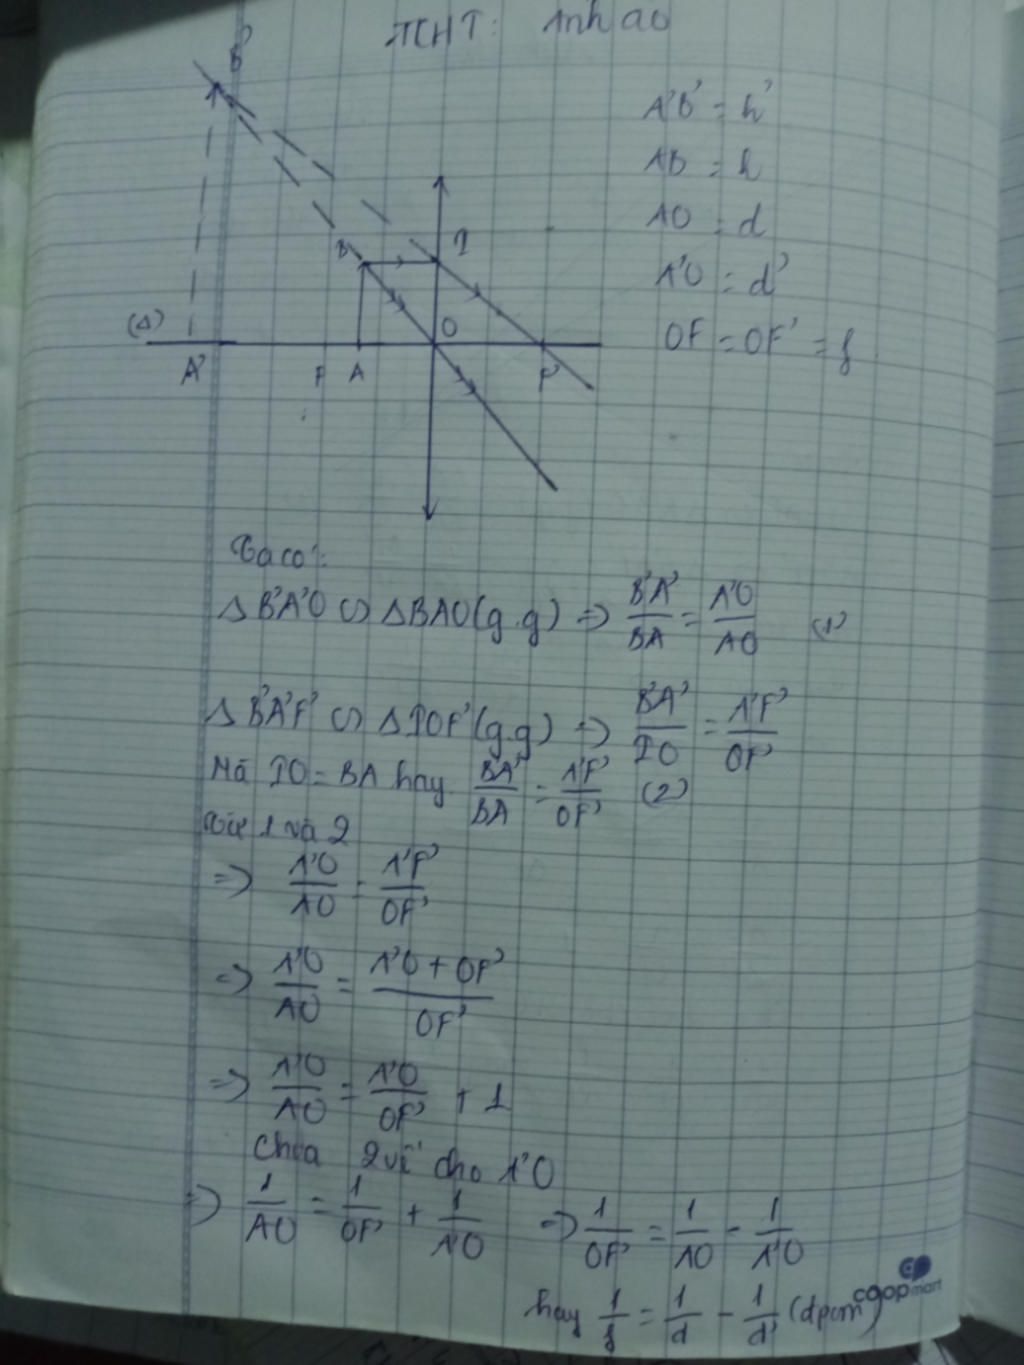 TCHT: Anh ao
B'
A'B' = h'
AB = h
B
I
AO = d
A'O = d'
(Δ)
O
OF = OF' = f
A'
F
A
F'
Ta co':
Δ B'A'O ∽ ΔBAO (g.g) => B'A'/BA = A'O/AO (1)
Δ B'A'F' ∽ ΔIOF' (g.g) => B'A'/IO = A'F'/OF'
Mà IO = BA hay BA'/BA = A'F'/OF' (2)
Từ 1 và 2
=> A'O/AO = A'F'/OF'
=> A'O/AO = (A'O + OF')/OF'
=> A'O/AO = A'O/OF' + 1
Chia 2 vế cho A'O
=> 1/AO = 1/OF' + 1/A'O => 1/OF' = 1/AO - 1/A'O
hay 1/f = 1/d - 1/d' (dpcm)
coopmart